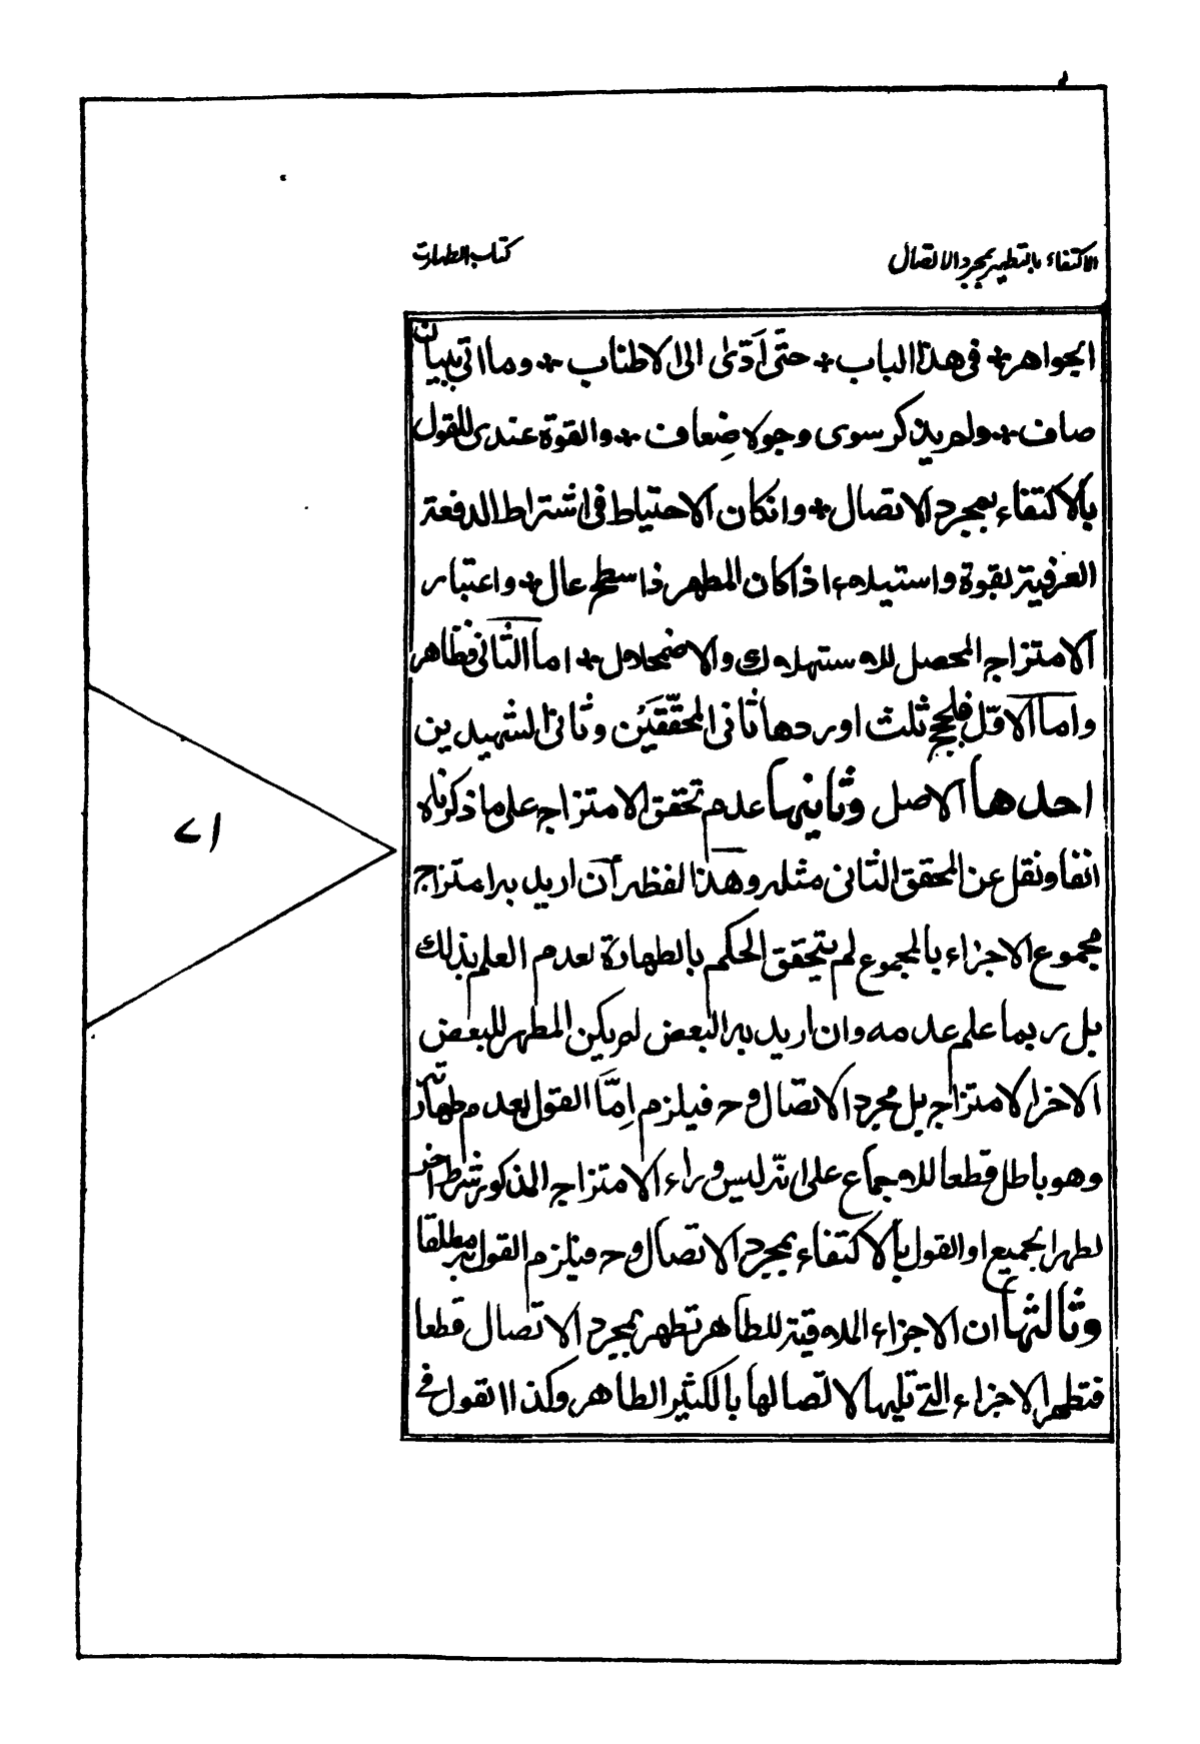 الاكتفاء بالتطهير بمجرد الاتصال
كتاب الطهارت
الجواهر + فى هذا الباب + حتّى أدّىٰ الى الاطناب + وما اتى ببيان
صاف + ولم يذكر سوى وجوه ضِعاف + والقوة عندى للقول
بالاكتفاء بمجرد الاتصال + وانكان الاحتياط فى اشتراط الدفعة
العرفية بقوة واستيلاء اذا كان المطهر ذا سطح عال + واعتبار
الامتزاج المحصل للاستهلاك والاضمحلال + اما الثانى فظاهر
واما الاوّل فلحجج ثلث اوردها ثانى المحقّقَيْن وثانى الشهيدين
احدها الاصل وثانيها عدم تحقق الامتزاج على ما ذكرناه
انفا ونقل عن المحقق الثانى مثله وهذا لفظه آن اريد به امتزاج
مجموع الاجزاء بالمجموع لم يتحقق الحكم بالطهارة لعدم العلم بذلك
بل ربما علم عدمه وان اريد به البعض لم يكن المطهر للبعض
الاخر الامتزاج بل مجرد الاتصال وح فيلزم اِمّا القول بعدم طهارته
وهو باطل قطعا للاجماع على انّه ليس وراء الامتزاج المذكور شرط اخر
لطهر الجميع او القول بالاكتفاء بمجرد الاتصال وح فيلزم القول به مطلقا
وثالثها ان الاجزاء الملاقية للطاهر تطهر بمجرد الاتصال قطعا
فتطهر الاجزاء التى تليها لاتصالها بالكثير الطاهر وكذا القول فى
٧١